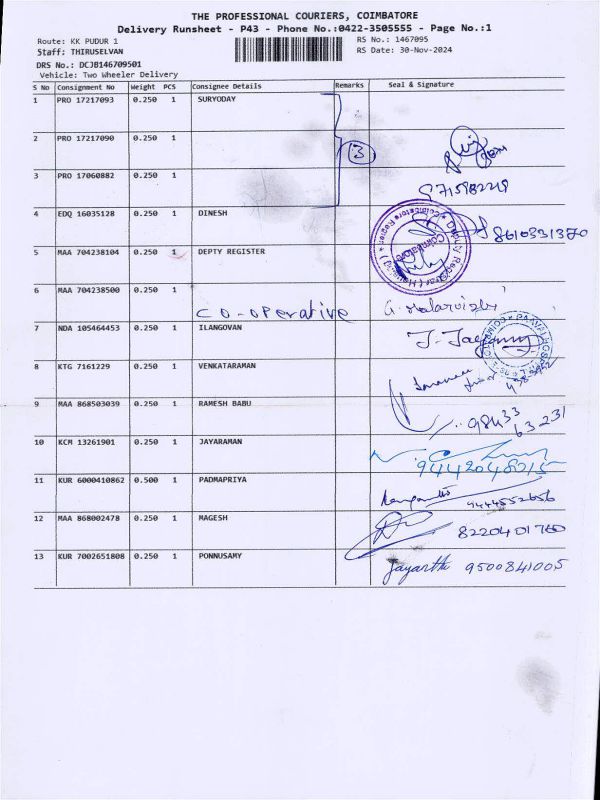 THE PROFESSIONAL COURIERS, COIMBATORE
Delivery Runsheet - P43 - Phone No.:0422-3505555 - Page No.:1
Route: KK PUDUR 1
RS No.: 1467095
Staff: THIRUSELVAN
RS Date: 30-Nov-2024
DRS No.: DCJB146709501
Vehicle: Two Wheeler Delivery
S No Consignment No Weight PCS Consignee Details Remarks Seal & Signature
1 PRO 17217093 0.250 1 SURYODAY
2 PRO 17217090 0.250 1
3
3 PRO 17060882 0.250 1
4 EDQ 16035128 0.250 1 DINESH
8610331370
5 MAA 704238104 0.250 1 DEPTY REGISTER
6 MAA 704238500 0.250 1
CO-operative G. Malarvizhi
7 NDA 105464453 0.250 1 ILANGOVAN
8 KTG 7161229 0.250 1 VENKATARAMAN
9 MAA 868503039 0.250 1 RAMESH BABU
98433
63231
10 KCM 13261901 0.250 1 JAYARAMAN
9442048215
11 KUR 6000410862 0.500 1 PADMAPRIYA
9444552656
12 MAA 868002478 0.250 1 MAGESH
8220401760
13 KUR 7002651808 0.250 1 PONNUSAMY
Jayanthi 9500841005